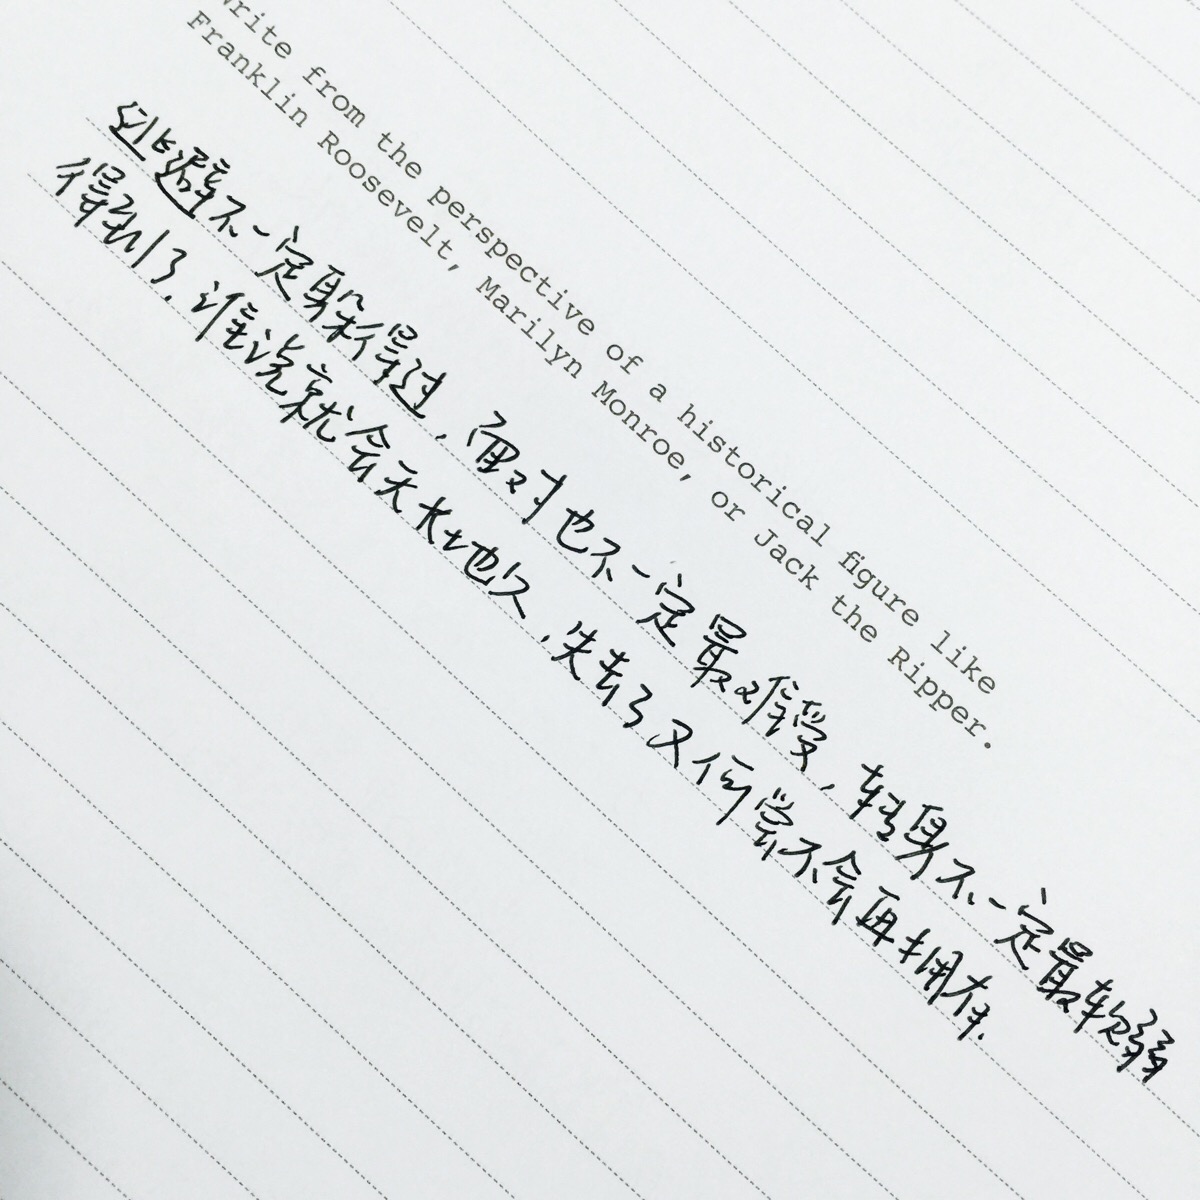 Write from the perspective of a historical figure like
Franklin Roosevelt, Marilyn Monroe, or Jack the Ripper.
逃避不一定躲得过，面对也不一定最难受，转身不一定最软弱
得到了，谁说就会天长地久，失去了又何尝不会再拥有.